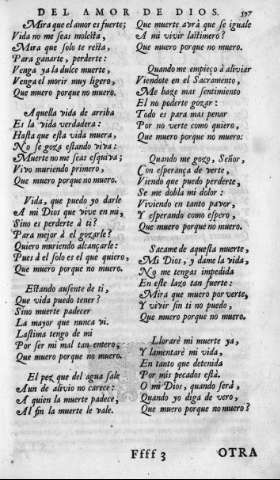 DEL AMOR DE DIOS. 597
Mira que el amor es fuerte;
Vida no me seas molesta,
Mira que solo te resta,
Para ganarte, perderte:
Venga ya la dulce muerte,
Venga el morir muy ligero,
Que muero porque no muero.
Aquella vida de arriba
Es la vida verdadera:
Hasta que esta vida muera,
No se goza estando viva:
Muerte no me seas esquiva;
Vivo muriendo primero,
Que muero porque no muero.
Vida, que puedo yo darle
A mi Dios que vive en mi,
Sino es perderte à ti?
Para mejor à el gozarle?
Quiero muriendo alcançarle:
Pues à el solo es el que quiero,
Que muero porque no muero.
Estando ausente de ti,
Que vida puedo tener?
Sino muerte padecer
La mayor que nunca vi.
Lastima tengo de mi
Por ser mi mal tan entero;
Que muero porque no muero.
El pez que del agua sale
Aun de alivio no carece:
A quien la muerte padece,
Al fin la muerte le vale.
Que muerte avrà que se iguale
A mi vivir lastimero?
Que muero porque no muero.
Quando me empieço à aliviar
Viendote en el Sacramento,
Me haze mas sentimiento
El no poderte gozar:
Todo es para mas penar
Por no verte como quiero,
Que muero porque no muero:
Quando me gozo, Señor,
Con esperança de verte,
Viendo que puedo perderte,
Se me dobla mi dolor:
Viviendo en tanto pavor,
Y esperando como espero,
Que muero porque no muero.
Sacame de aquesta muerte,
Mi Dios, y dame la vida,
No me tengas impedida
En este lazo tan fuerte:
Mira que muero por verte,
Y vivir sin ti no puedo,
Que muero porque no muero.
Lloraré mi muerte ya,
Y lamentaré mi vida,
En tanto que detenida
Por mis pecados està.
O mi Dios, quando serà,
Quando yo diga de vero,
Que muero porque no muero?
Ffff 3 OTRA